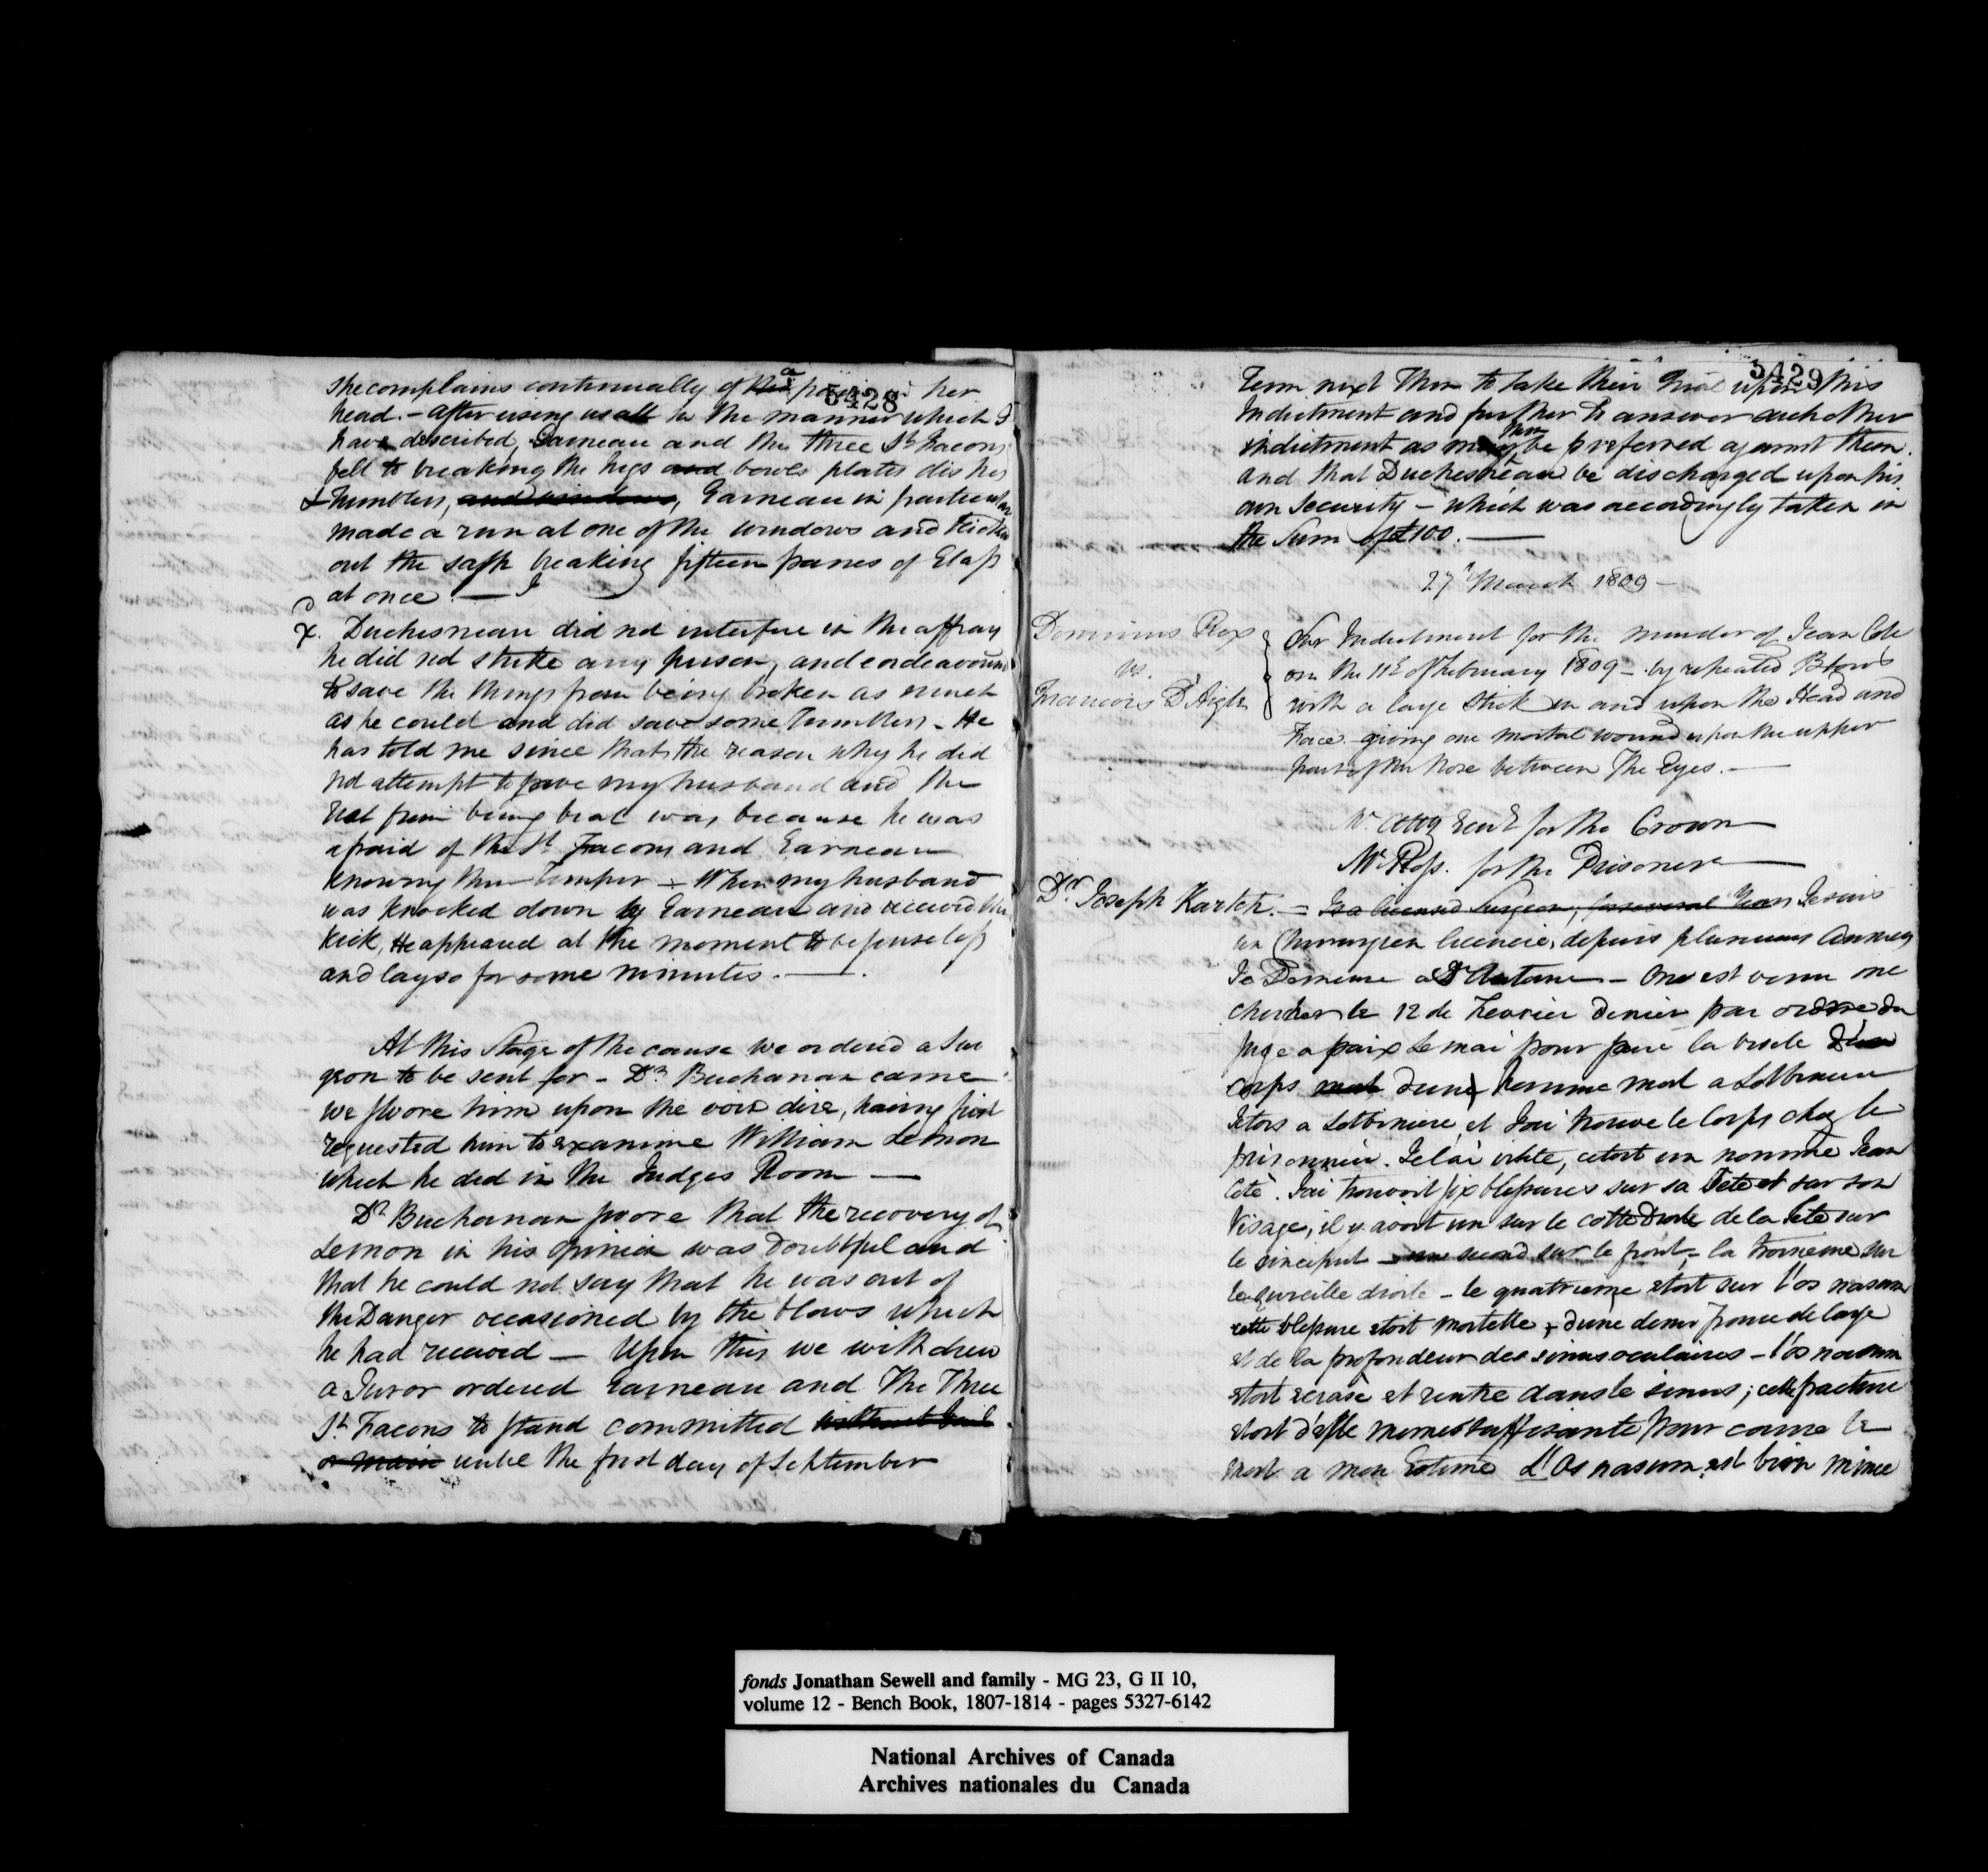 5428
She complains continually of a pain in her
head. - after using us all in the manner which I
have described, Garneau and the three St Facons
fell to breaking the Jugs and bowls plates dishes
& Tumblers, and windows, Garneau in particular
made a run at one of the windows and kicked
out the sash breaking fifteen panes of Glass
at once. —
X. Duchesneau did not interfere in the affray
he did not strike any person, and endeavoured
to save the things from being broken as much
as he could and did save some Tumblers - He
has told me since that the reason why he did
not attempt to save my husband and the
rest from being beat was, because he was
afraid of the St Facons and Garneau
knowing their Temper - When my husband
was knocked down by Garneau and received the
kick, He appeared at the moment to be senseless
and lay so for some minutes. —
At this Stage of the cause we ordered a Sur
geon to be sent for - Dr Buchanan came
we swore him upon the voir dire, having first
requested him to examine William Lemon
which he did in the Judges Room —
Dr Buchanan swore that the recovery of
Lemon in his opinion was Doubtful and
that he could not say that he was out of
the Danger occasioned by the blows which
he had received — Upon this we withdrew
a Juror ordered Garneau and The Three
St Facons to stand committed without bail
or main until the first day of September
5429
Term next Then to take their Trial upon this
Indictment and further to answer such other
indictment as may then be preferred against them.
and that Duchesneau be discharged upon his
own Security - which was accordingly taken in
the Sum of £100. —
27 March 1809 -
Dominus Rex
vs.
Francois D'Aigle
Indictment for the murder of Jean Coté
on the 11th of February 1809 - by repeated Blows
with a large Stick in and upon the Head and
Face - giving one mortal wound upon the upper
part of the Nose between The Eyes. —
Mr Atty Genl for the Crown
Mr Ross. for the Prisoner
Dr. Joseph Kartch. - Is a licensed Surgeon, for several Years Je suis
un Chirurgien licencié, depuis plusieurs Années
Je Demeure a St Antoine - On est venu me
chercher le 12 de Fevrier dernier par ordre du
Juge a paix Lemai pour faire la visite
corps mort d'une homme mort a Lotbiniere
Jetois a Lotbiniere, et J'ai trouvé le Corps chez le
prisonnier. Je l'ai visité, c'etoit un nommé Jean
Coté. J'ai trouvoit six blessures sur sa Tete et sur son
Visage, il y avoit un sur le cotte Droite de la Tete sur
le sinciput - une second sur le front, - la troisieme sur
l'oreille droite - le quatrieme etoit sur l'os nasum
cette blessure etoit mortelle, d'une demi pouce de large
et de la profondeur des sinus oculaires - l'os nasum
etoit ecrasé et rentre dans le sinus; cette fracture
etoit d'elle meme suffisante pour causer la
mort a mon Estime L'Os nasum est bien mince
fonds Jonathan Sewell and family - MG 23, G II 10,
volume 12 - Bench Book, 1807-1814 - pages 5327-6142
National Archives of Canada
Archives nationales du Canada